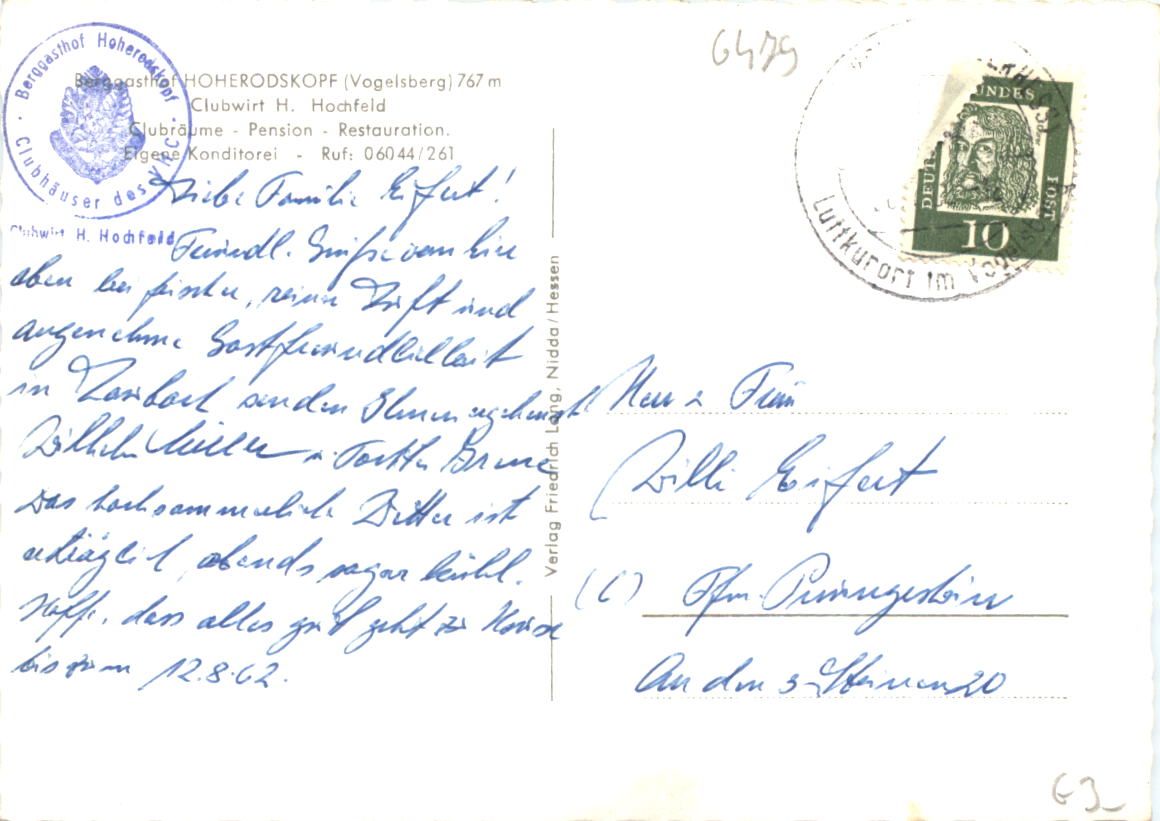 Berggasthof Hoherodskopf
Clubhäuser des V.H.C.
Clubwirt H. Hochfeld
Berggasthof HOHERODSKOPF (Vogelsberg) 767 m
Clubwirt H. Hochfeld
Clubräume - Pension - Restauration.
Eigene Konditorei - Ruf: 06044/261
Liebe Familie Eifert!
Freundl. Grüße von hier
oben bei frischer, reiner Luft und
angenehme Gastfreundlichkeit
in senden Ihnen
Wilhelm Müller u. Tochter
Das hochsommerliche Wetter ist
erträglich, abends sogar kühl.
Hoffe, dass alles gut geht zu Hause
bis zum 12.8.62.
Verlag Friedrich Lang, Nidda/Hessen
6479
DEUT BUNDES POST
10
Luftkurort im Vogelsb
Herr u Frau
Willi Eifert
(6) Ffm. Preungesheim
An den 3 Steinen 20